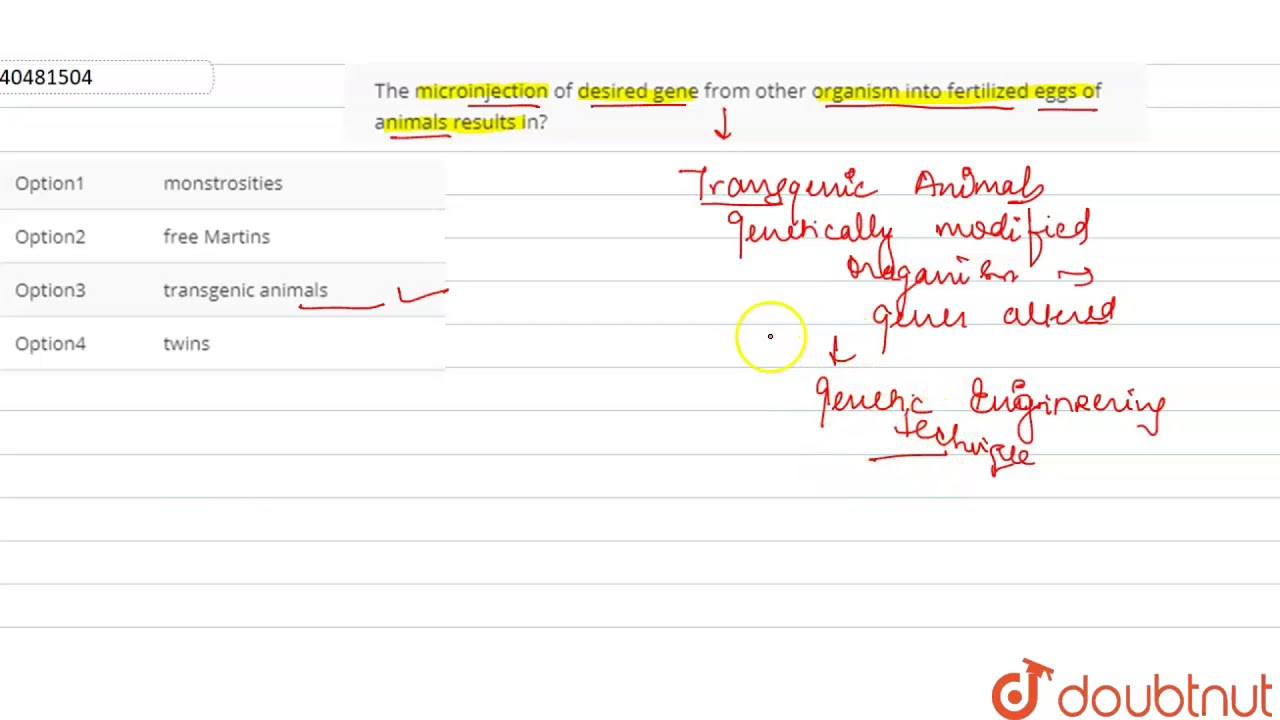 40481504
The microinjection of desired gene from other organism into fertilized eggs of
animals results in?
Option1 monstrosities
Option2 free Martins
Option3 transgenic animals
Option4 twins
Transgenic Animals
genetically modified
organism
genes altered
Genetic Engineering
technique
doubtnut